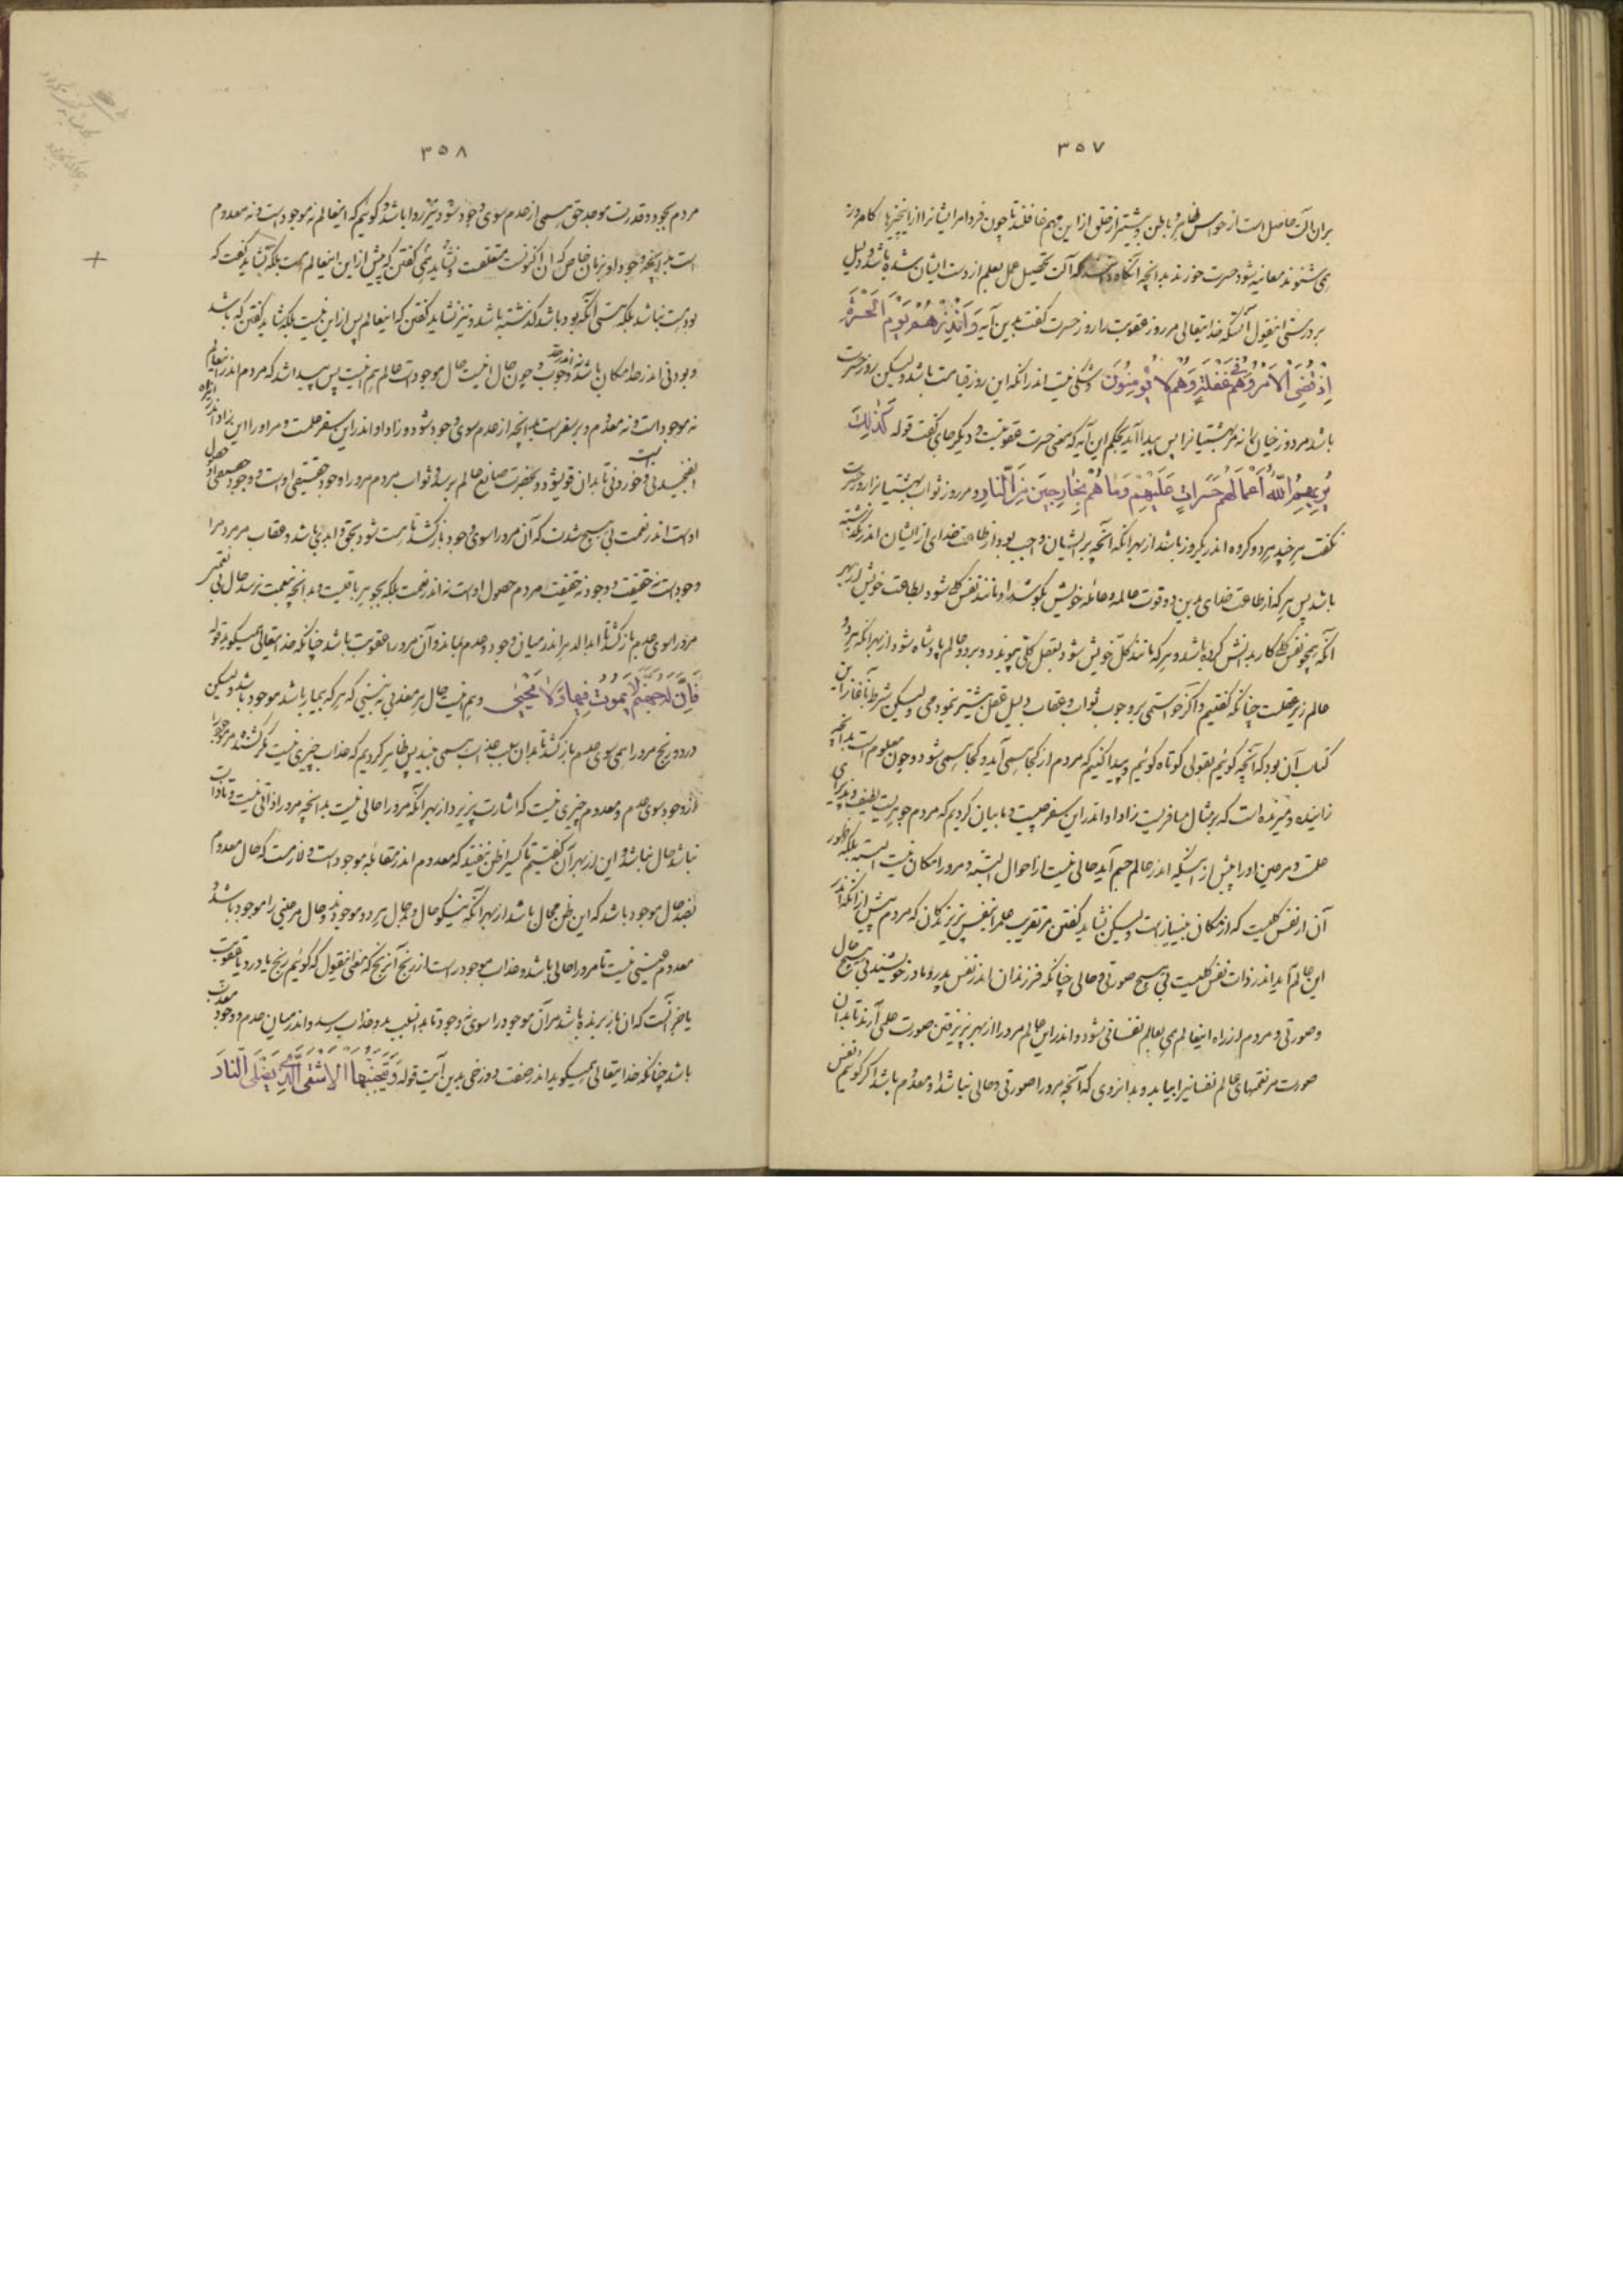 ۳۵۷
بران آلت حاصل است از حواس ظاهر و باطن و بیشتر از خلق از این مهم غافلند تا چون فردا مر ایشانرا از این چیزها کامروز
می شنوند معاینه شود حسرت خورند بدانچه آنگاه دانند که آلت تحصیل عمل بعلم از دست ایشان شده باشد و دلیل
بر درستی اینقول آنستکه خدایتعالی مر روز عقوبت را روز حسرت گفت بدین آیه وَاَنْذِرْهُمْ یَوْمَ الْحَسْرَةِ
اِذْ قُضِیَ الْاَمْرُ وَهُمْ فی غَفْلَةٍ وَهُمْ لا یُؤْمِنُونَ و شکی نیست اندر انکه این روز قیامت باشد ولیکن روز حسرت
باشد مر دوزخیان را نه مر بهشتیانرا پس پیدا آمد بحکم این آیه که معنی حسرت عقوبتست و دیگر جای گفت قوله کَذٰلِكَ
یُریهِمُ اللهُ اَعْمالَهُمْ حَسَراتٍ عَلَیْهِمْ وَما هُمْ بِخارِجینَ مِنَ النّارِ و مر روز ثواب بهشتیانرا روز حسرت
نگفت هر چند هر دو گروه اندر یکروز باشد از بهر انکه آنچه بر ایشان واجب بود از طاعت خدای از ایشان اندر گذشته
باشد پس هر که از طاعت خدای بدین دو قوت عالمه و عامله خویش بکوشد او مانند نفس کلی شود بطاعت خویش از بهر
انکه همچو نفس کلی کار بدانش کرده باشد و هر که مانند کل خویش شود بعقل کلی پیوندد و بر دو عالم پادشاه شود از بهر انکه هر دو
عالم زیر عقلست چنانکه گفتیم و اگر خواستمی بر وجوب ثواب و عقاب دلیل عقل بیشتر نمودمی ولیکن شرط ما بآغاز این
کتاب آن بود که آنچه گوئیم بقولی کوتاه گوئیم و پیدا کنیم که مردم از کجا همی آید و کجا همی شود و چون معلوم است بدانچه
زاینده و میرنده است که بر مثال مسافریست زاد او اندر این سفر چیست و ما بیان کردیم که مردم جوهریست لطیف و پذیرای
علمت و مر عین او را پیش از اینکه اندر عالم جسم آید حالی نیست از احوال البته و مر او را مکان نیست البته بلکه ظهور
آن از نفس کلیست که از مکان بی نیاز است ولیکن نشاید گفتن مر تقریب علم را بنفس پرورندگان که مردم پیش از انکه اندر
این عالم آید اندر ذات نفس کلیست بی هیچ صورتی و حالی چنانکه فرزندان اندر نفس پدر و مادر خویشند بی هیچ حال
و صورتی و مردم از راه اینعالم می بعالم نفسانی شود و اندر این عالم مر او را از بهر پذیرفتن صورت علمی آرند تا بدان
صورت مر نعمتهای عالم نفسانیرا بیابد و بدانروی که آنچه مر او را صورتی و حالی نباشد او معدوم باشد اگر گوئیم نفس
۳۵۸
مردم بجود و قدرت موجد حق همی از عدم سوی وجود شود نیز روا باشد و گوئیم که اینعالم نه موجود است و نه معدوم
است بدانچه وجود او بزمان خاص که آن اکنونست متعلقست و نشاید نمی گفتن که پیش از این اینعالم است بلکه شاید گفت که
بود و هست نباشد بلکه هستی آنکه بود باشد گذشته باشد و نیز نشاید گفتن که اینعالم پس از این نیست بلکه شاید گفتن که باشد
و بودنی اندر حد امکان باشد نه اندر حد وجوب و چون حال اینست حال موجودات عالم هم اینست پس پیدا شد که مردم اندر اینعالم
نه موجود است و نه معدوم و بر سفر است بدانچه از عدم سوی وجود شود و زاد او اندر این سفر علمست و مر او را این زاد اندر این راه
الفنجیدنی و خوردنی است تا بدان قوی شود و بحضرت صانع عالم برسد و ثواب مردم مر او را وجود حقیقی اوست و وجود حقیقی او حصول
اوست اندر نعمت بی هیچ شدت که آن مر او را سوی وجود بازگشد تا هست شود بحق و ابدی باشد و عقاب مر مردم را
وجود است نه حقیقت و وجود نه حقیقت مردم حصول اوست نه اندر نعمت بلکه بجوهر باقیست و بدانچه بنعمت نرسد حال بی نعمتی
مر او را سوی عدم باز کشد تا ابد الدهر اندر میان وجود و عدم بماند و آن مر او را عقوبت باشد چنانکه خدایتعالی همیگوید قوله
فَاِنَّ لَهُ جَهَنَّمَ لا یَمُوتُ فیها وَلا یَحْیی و هم اینست حال هر معذبی نه بینی که هر که بیمار باشد موجود باشد ولیکن
درد و رنج مر او را همی سوی عدم باز کشد تا بدان سبب عذاب همی بیند پس ظاهر کردیم که عذاب چیزی نیست مگر کشنده مر موجود را
از وجود سوی عدم و معدوم چیزی نیست که اشارت پذیرد از بهر انکه مر او را حالی نیست بدانچه مر او را ذاتی نیست و تا ذات
نباشد حال نباشد و این از بهر آن گفتیم تا کسیرا ظن نیفتد که معدوم اندر مقابله موجود است و لازمست که حال معدوم
بضد حال موجود باشد که این ظن محال باشد از بهر انکه نیکو حال و بد حال هر دو موجودند و حال مر عینی را موجود باشد و
معدوم عینی نیست تا مر او را حالی باشد و عذاب موجود راست از رنج آن رنج که معنی اینقول که گوئیم رنج یا درد یا عقوبت
یا ضر آنست که ان باز برنده باشد مر آن موجود را سوی نه وجود تا بدان سبب بدو عذاب رسد و اندر میان عدم و وجود معذب
باشد چنانکه خدایتعالی همیگوید اندر صفت دوزخی بدین آیت قوله وَیَتَجَنَّبُهَا الْاَشْقَی الَّذی یَصْلَی النّارَ